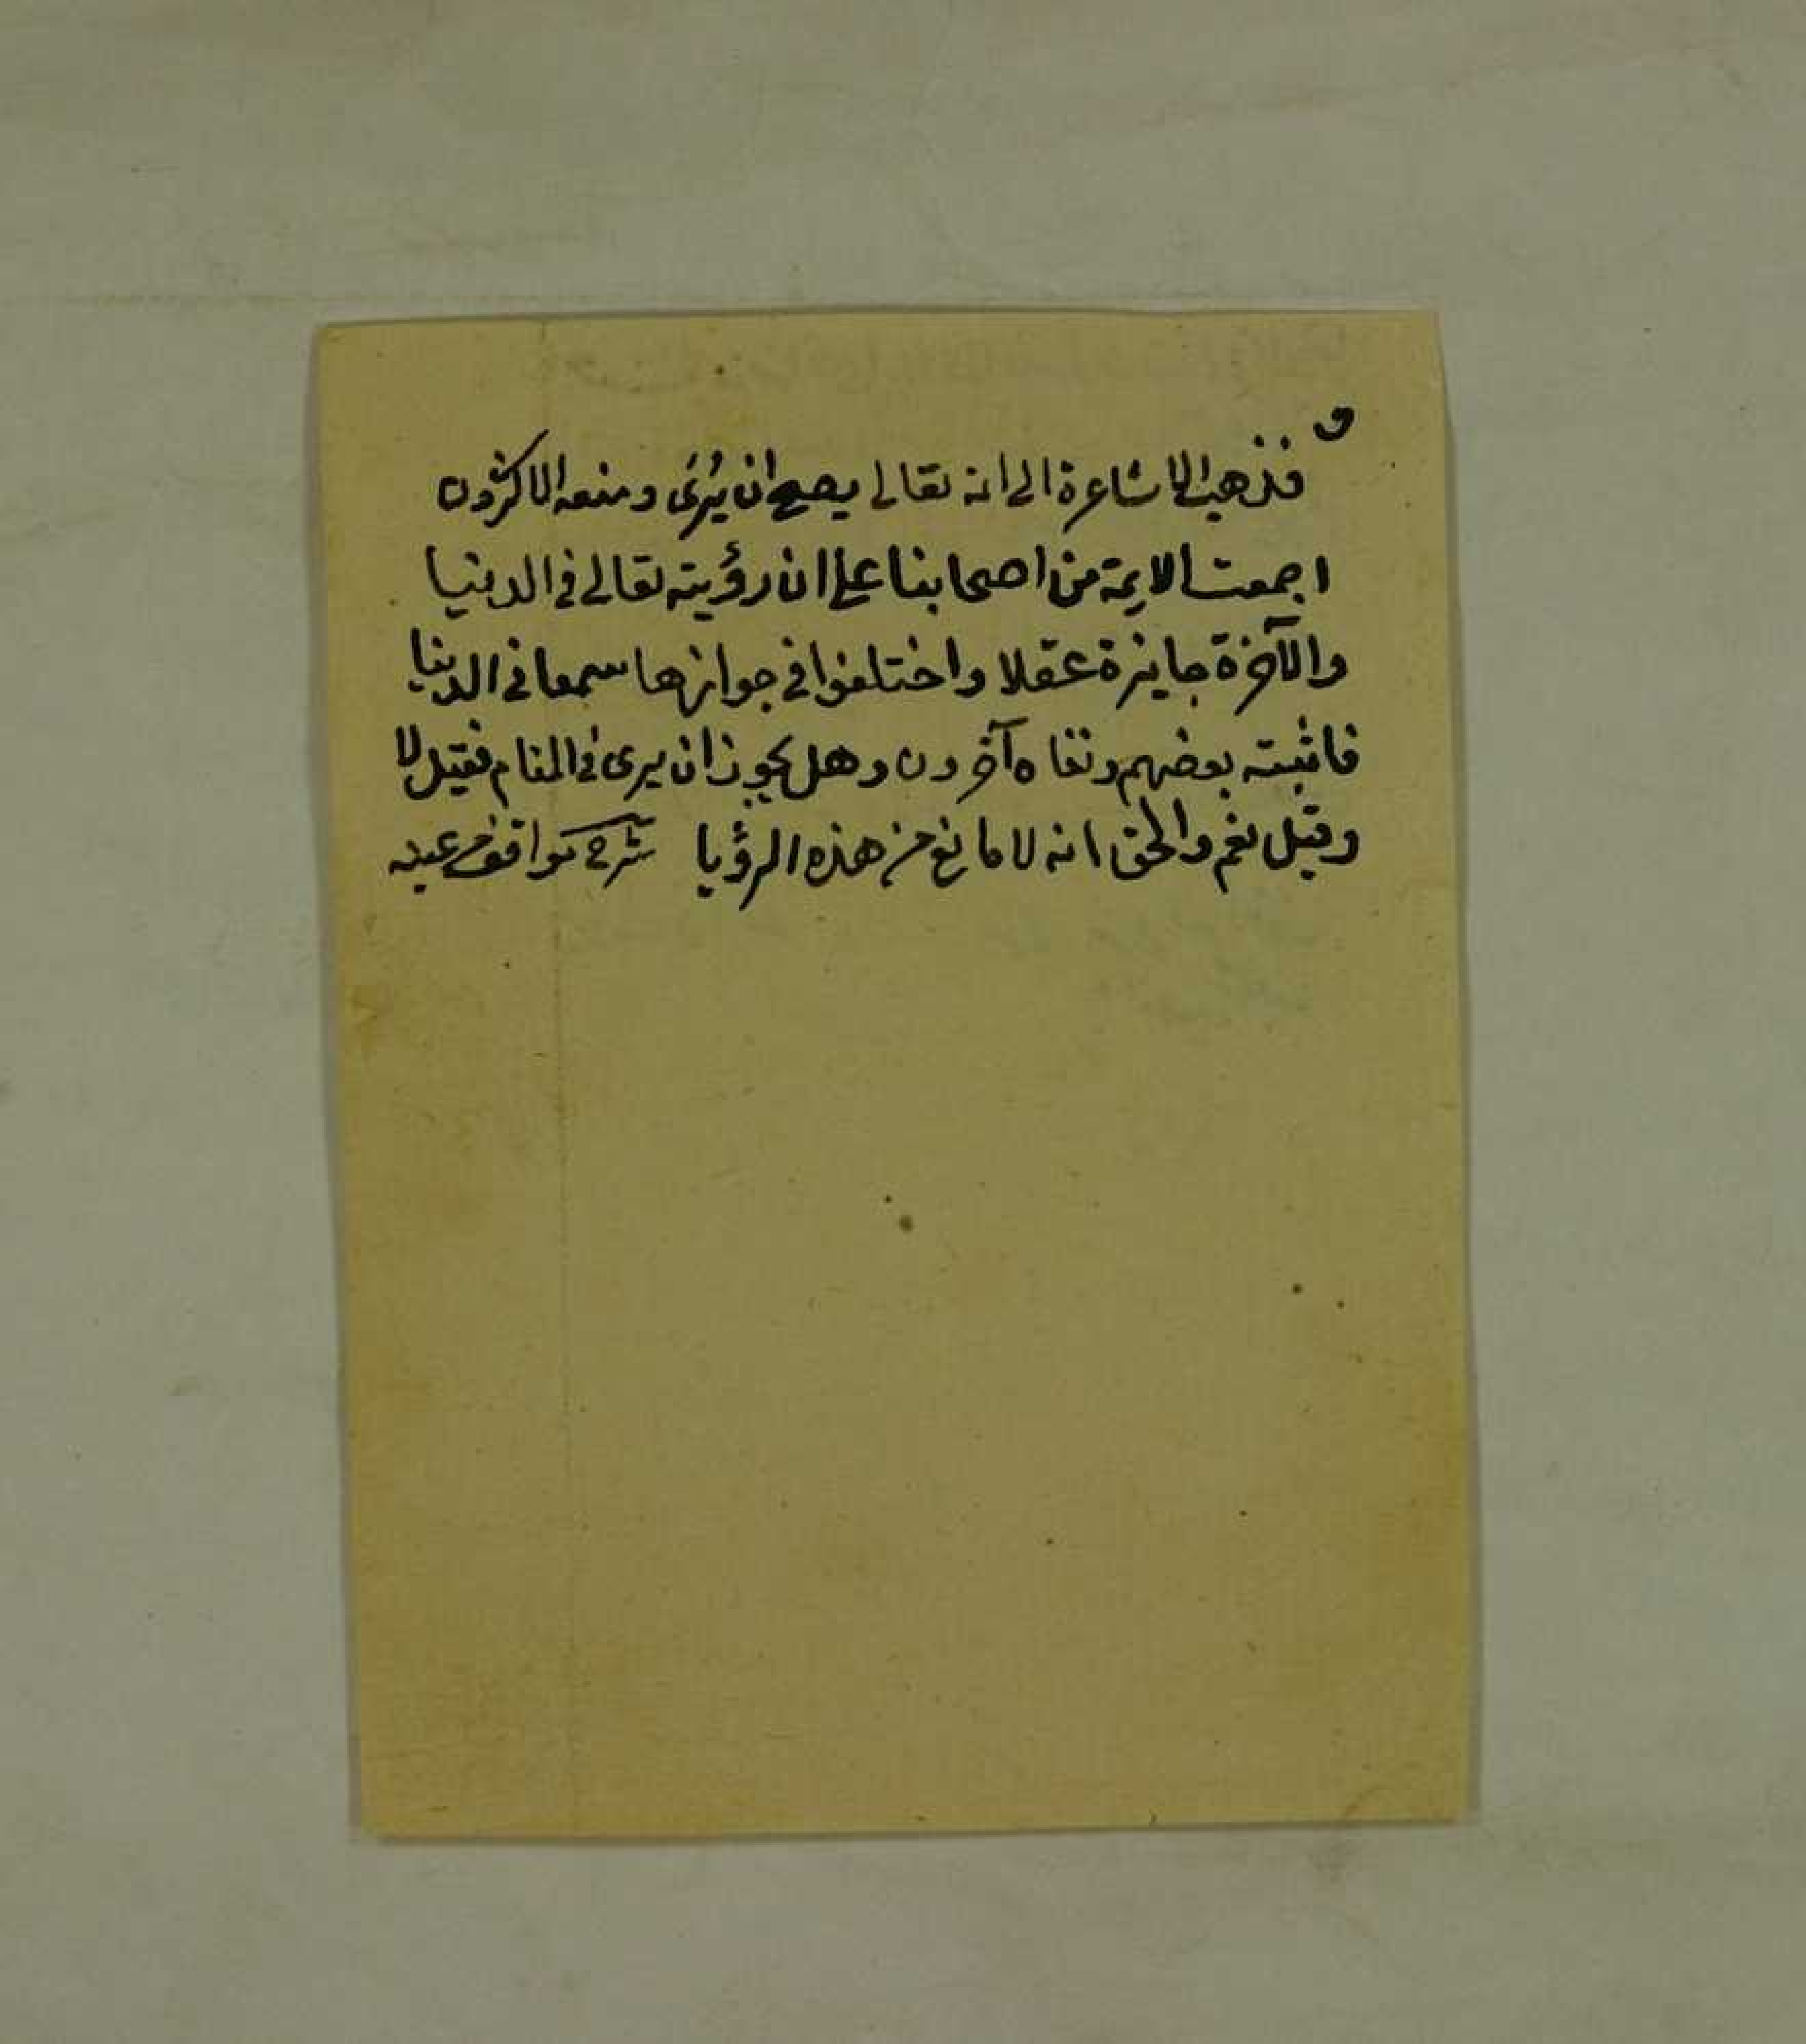 فذهب الاشاعرة الى انه تعالى يصح ان يُرَى ومنعه الاكثرون
اجمعت الايمة من اصحابنا على ان رؤيته تعالى فى الدنيا
والآخرة جايزة عقلا واختلفوا فى جوازها سمعا فى الدنيا
فاثبته بعضهم ونفاه آخرون وهل يجوز ان يرى فى المنام فقيل لا
وقيل نعم والحق انه لا مانع من هذه الرؤيا شرح مواقف